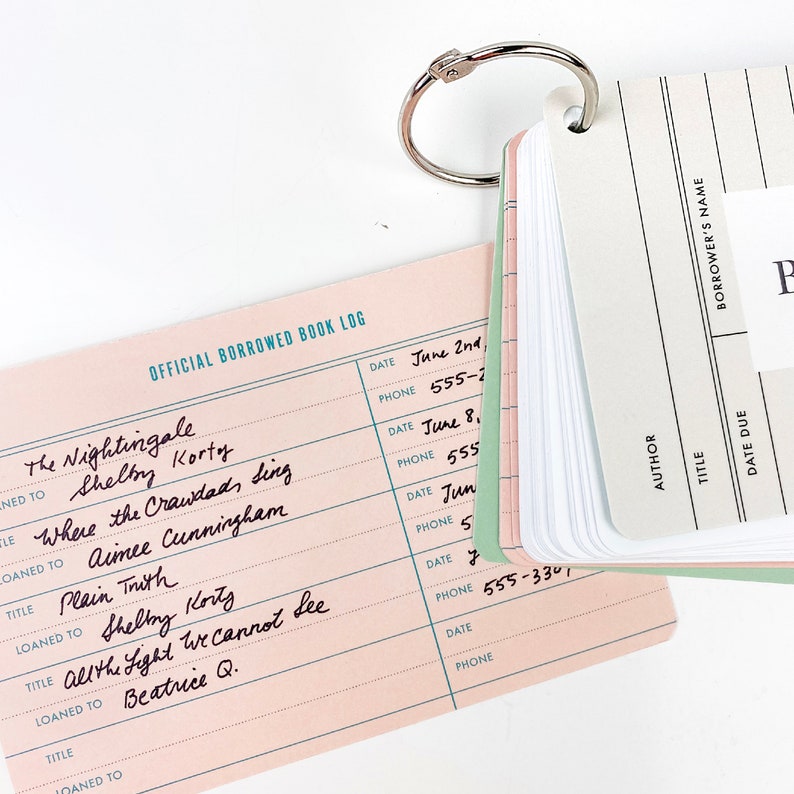 OFFICIAL BORROWED BOOK LOG
The Nightingale
DATE June 2nd,
ANED TO Shelby Korty
PHONE 555-2
TLE Where the Crawdads Sing
DATE June 8,
LOANED TO Aimee Cunningham
PHONE 555
TITLE Plain Truth
DATE Jun
LOANED TO Shelby Korty
PHONE 5
TITLE All the Light We Cannot See
DATE
LOANED TO Beatrice Q.
PHONE 555-330
TITLE
DATE
LOANED TO
PHONE
AUTHOR
TITLE
BORROWER'S NAME
DATE DUE
B